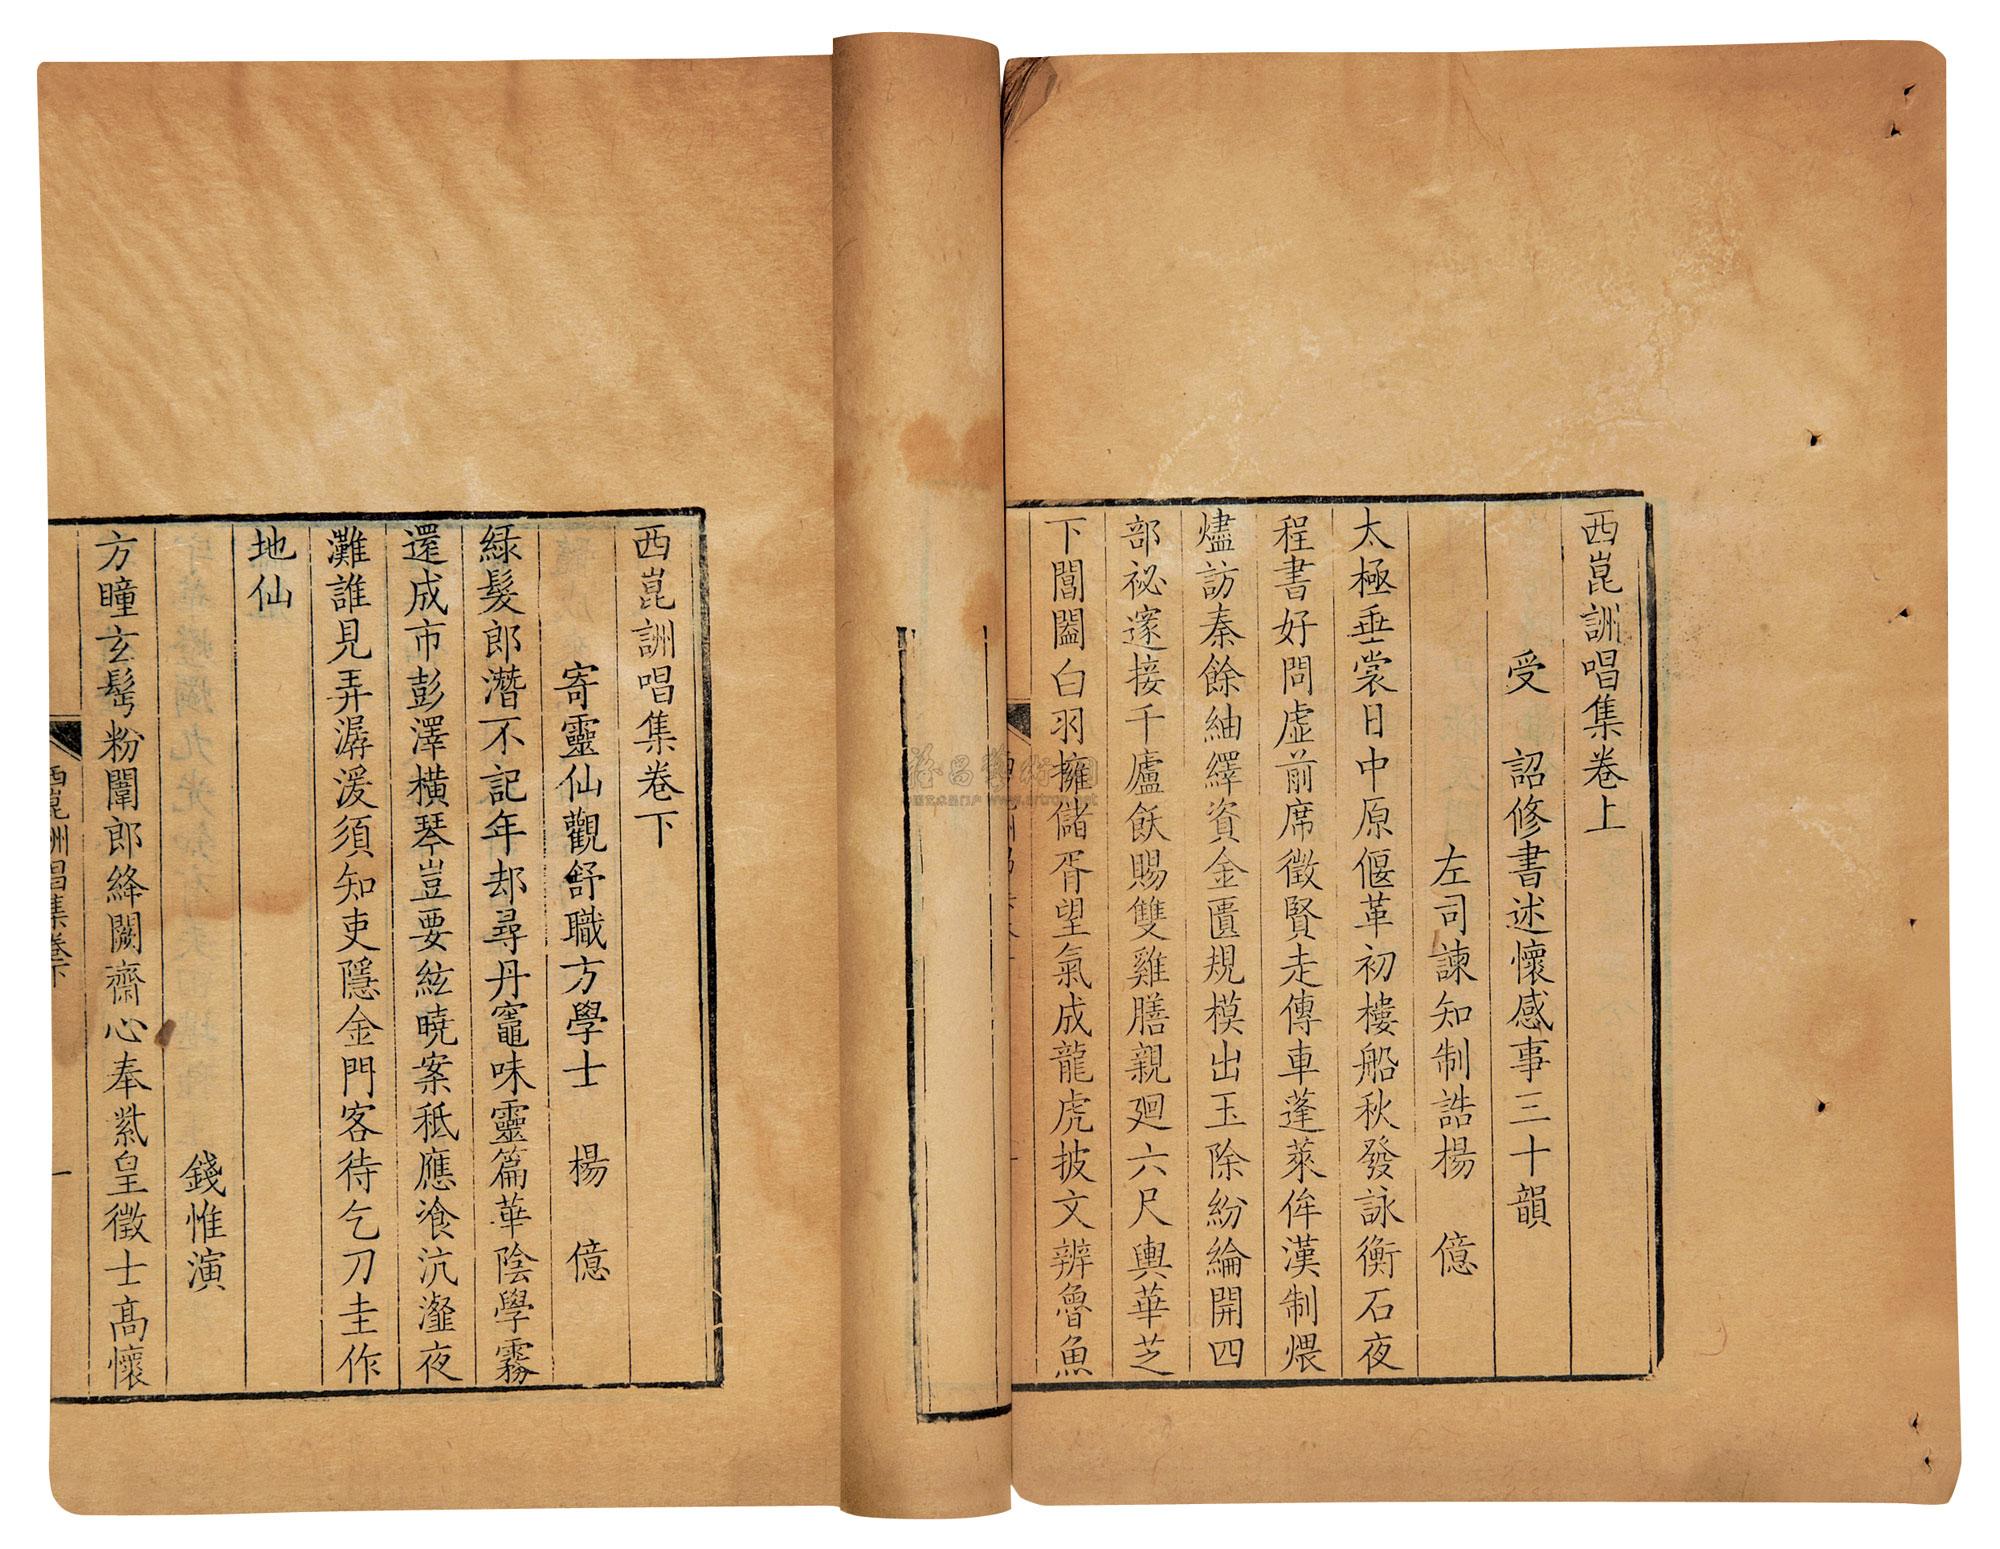 西崑詶唱集卷上
受 詔修書述懷感事三十韻
左司諫知制誥楊 億
太極垂裳日中原偃革初樓船秋發詠衡石夜
程書好問虛前席徵賢走傳車蓬萊侔漢制煨
燼訪秦餘紬繹資金匱規模出玉除紛綸開四
部祕邃接千廬飫賜雙雞膳親廻六尺輿華芝
下閶闔白羽擁儲胥望氣成龍虎披文辨魯魚
西崑詶唱集卷下
寄靈仙觀舒職方學士 楊 億
綠髮郎潛不記年却尋丹竈味靈篇華陰學霧
還成市彭澤橫琴豈要絃曉案秪應飡沆瀣夜
灘誰見弄潺湲須知吏隱金門客待乞刀圭作
地仙
錢惟演
方瞳玄髩粉闈郎絳闕齋心奉紫皇徵士高懷
西崑詶唱集卷下
一